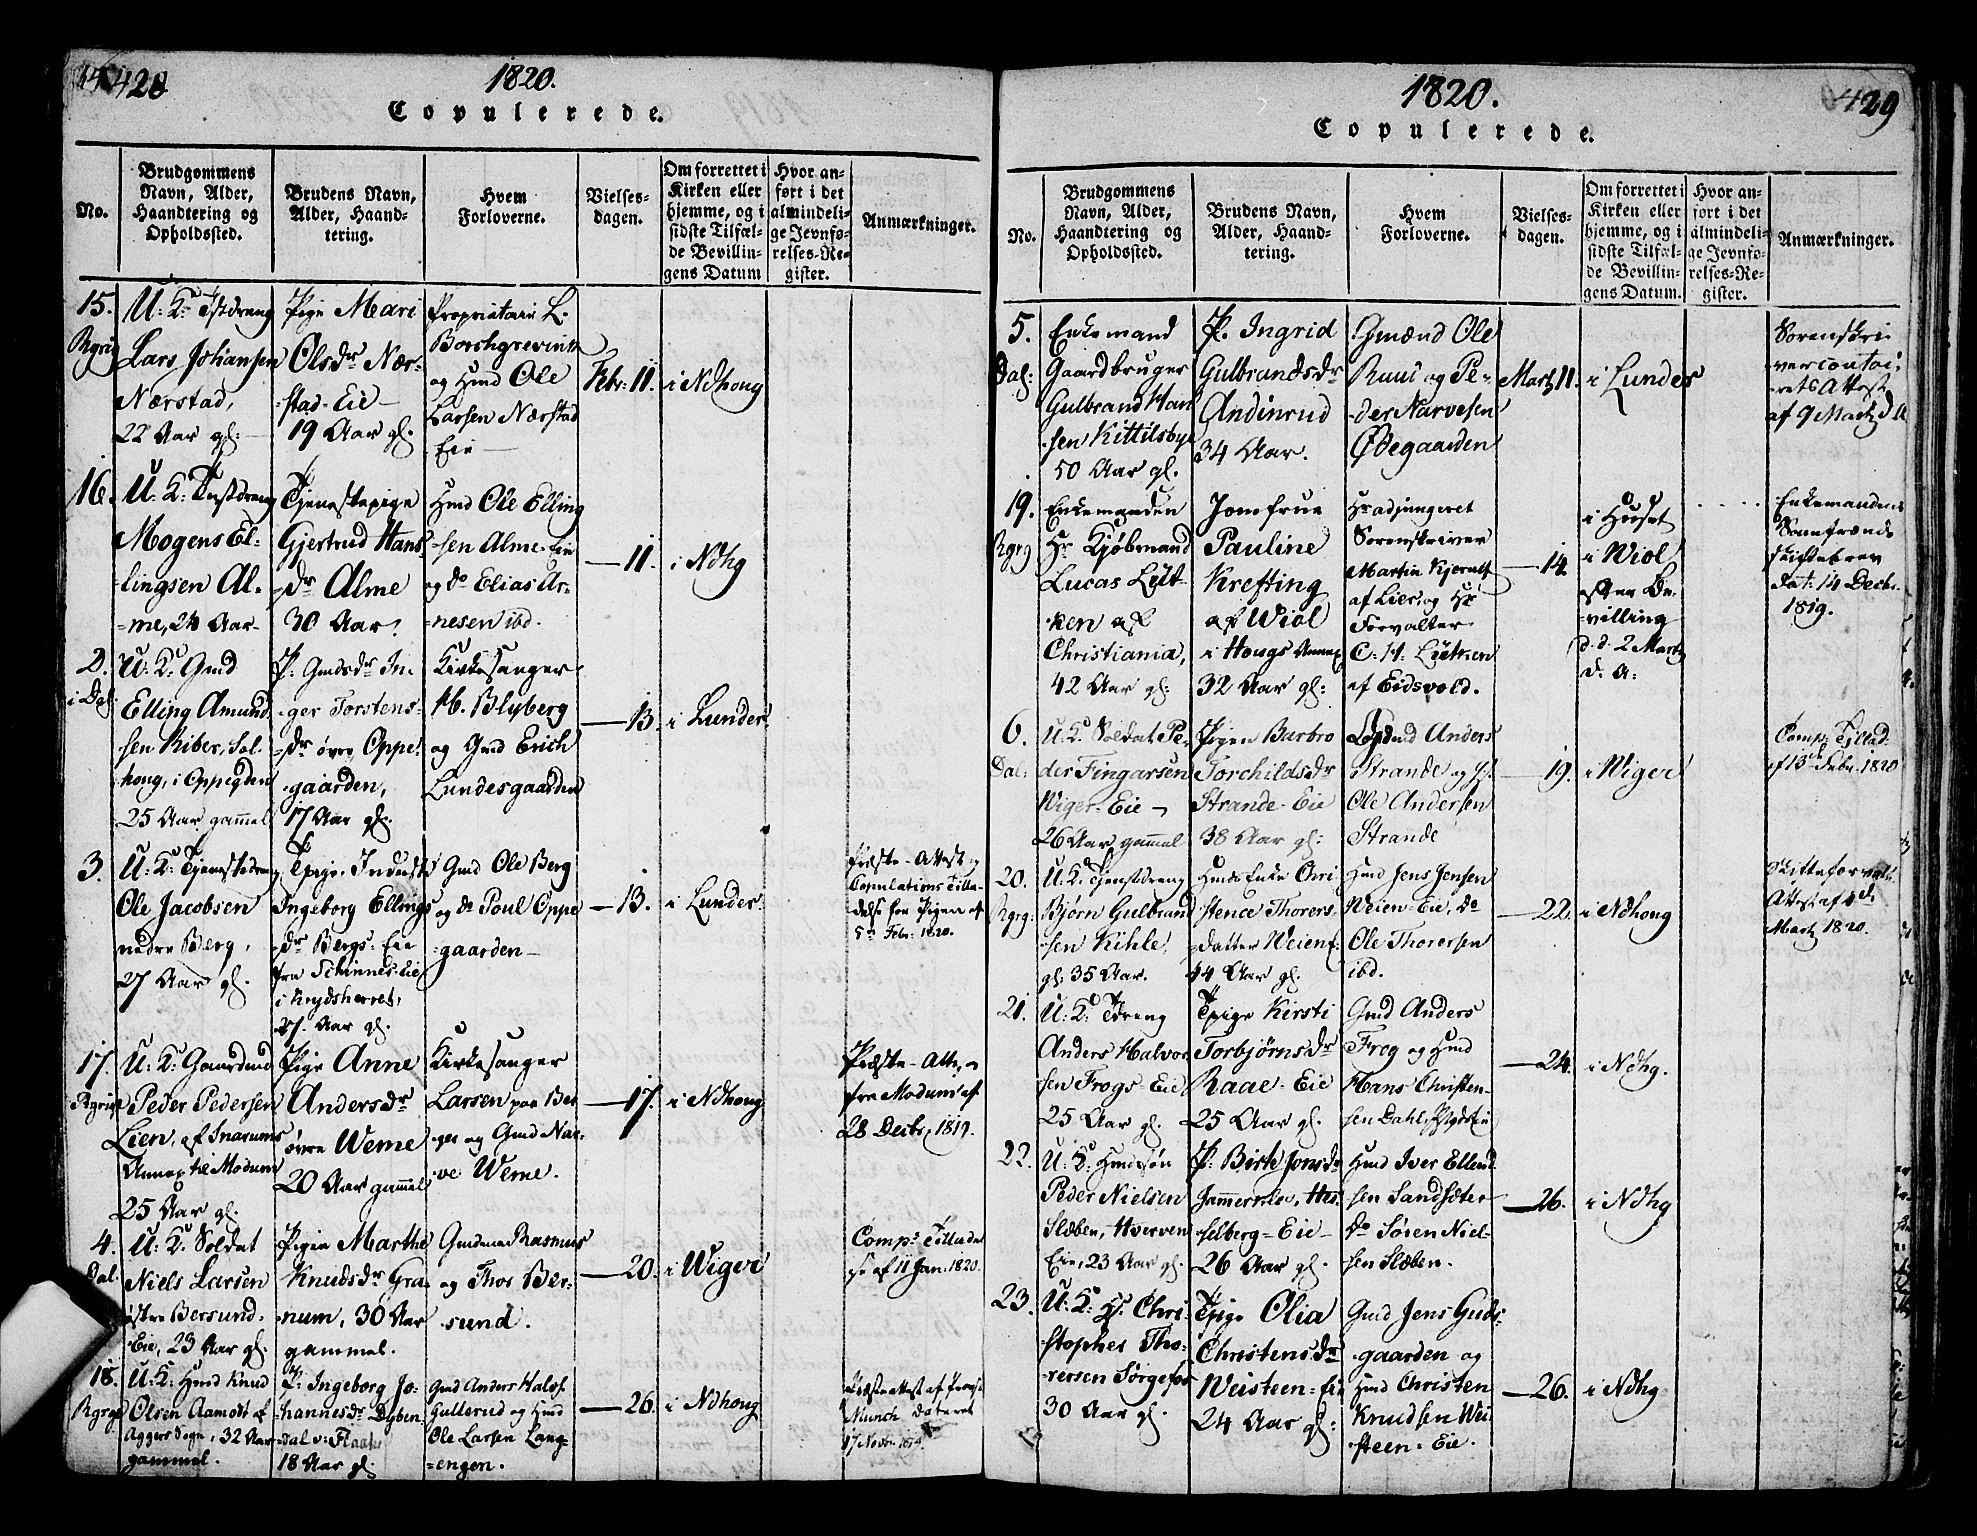 428
1820.
Copulerede.
No.
Brudgommens
Navn, Alder,
Haandtering og
Opholdssted.
Brudens Navn,
Alder, Haand-
tering.
Hvem
Forloverne.
Vielses-
dagen.
Om forrettet i
Kirken eller
hjemme, og i
sidste Tilfæl-
de Bevillin-
gens Datum
Hvor an-
ført i det
almindeli-
ge Jevnfø-
relses-Re-
gister.
Anmærkninger.
15.
U: K:
Lars Johansen
Nærstad,
22 Aar gl:
Pige Mari
Olsdr Nær-
stad-Eie
19 Aar gl.
Proprietair L.
Borchgrevink
og Hmd Ole
Larsen Nærstad
Eie
Febr: 11.
i Ndhong
16.
U: K: Tjenstdreng
Mogens El-
lingsen Al-
me, 24 Aar
Tjenestepige
Gjertrud Hans
dr Alme
30 Aar.
Hmd Ole Elling
sen Alme-Eie
og do Elias Ar-
nesen ibd.
11.
i Ndhg
2.
i Dal
U: K: Gmd
Elling Amund
sen Riber, Sol-
hong, i Oppegden
25 Aar gammel
P. Gmdsdr In-
ger Torstens-
dr øvre Oppe-
gaarden,
17 Aar gl.
Kirkesanger
Blyberg
og Gmd Erich
Lundesgaarden
13.
i Lunder
3.
U: K: Tjenestedreng
Ole Jacobsen
nedre Berg,
27 Aar gl.
Tpige
Ingeborg Ellings
dr Bergs-Eie
fra Schinnes-Eie
i Krydsherret,
27. Aar gl.
Gmd Ole Berg
og do Poul Oppe
gaarden
13.
i Lunder
Præste-Attest
Copulations Tilla-
delse fra Pigen af
5te Febr: 1820.
17.
U: K: Gaardmd
Peder Pedersen
Lien, af Snarums
Annex til Modum
25 Aar gl.
Pige Anne
Andersdr
øvre Werne
20 Aar gammel
Kirkesanger
Larsen paa Ber
ger og Gmd Nar-
ve Werne.
17.
i Ndhong
Præste-Att:
fra Modum af
28 Decbr. 1819.
4.
Dal.
U: K: Soldat
Niels Larsen
østre Bersund-
Eie, 23 Aar gl.
Pigen Marthe
Knudsdr Gra-
num, 30 Aar
gammel.
Gmdene Rasmus
og Thor Ber-
sund.
20.
i Wiger
Comp: Tillade
se af 11 Jan: 1820.
18.
U: K: Hmd Knud
Olsen Aamodt af
Aggers Sogn, 32 Aar
gammel.
P. Ingeborg Jo-
hannesdr Dyben-
dal
18 Aar gl.
Gmd Anders Halvs.
Gullerud og Hmd
Ole Larsen Lang-
engen.
26.
i Ndhong
Præsteattest af Provst
Munch dateret
17 Novbr
1820.
429
Copulerede.
No.
Brudgommens
Navn, Alder,
Haandtering og
Opholdssted.
Brudens Navn,
Alder, Haand-
tering.
Hvem
Forloverne.
Vielses-
dagen.
Om forrettet i
Kirken eller
hjemme, og i
sidste Tilfæl-
de Bevillin-
gens Datum.
Hvor an-
ført i det
almindeli-
ge Jevnfø-
relses-Re-
gister.
Anmærkninger.
5.
Dal:
Enkemand
Gaardbruger
Gulbrand Han
sen Kittilsbye
50 Aar gl.
P. Ingrid
Gulbrandsdr
Andinrud
34 Aar.
Gmænd Ole
Ruus og Pe-
der Narvesen
Ødegaarden
Martz 11.
i Lunder
Sorenskri
vercontoi-
rets Attest
af 9 Martz d. A
19.
Rgrg
Enkemanden
Hr Kjøbmand
Lucas Lüt-
ken af
Christiania,
42 Aar gl:
Jomfrue
Pauline
Krefting
af Wiøl
i Hougs Annex
32 Aar gl:
Hr adjungeret
Sorenskriver
Martin Kjerulf
af Lier, og Hr
Forvalter
C: H: Lütken
af Eidsvold.
14.
i Huset
i Wiøl
efter Be-
villing
d. d. 2 Martz
d. A:
Enkemandens
Samfrænde
skiftebrev
Dat: 14 Decbr.
1819.
6.
Dal:
U: K: Soldat Pe-
der Fingarsen
Wiger-Eie
26 Aar gammel
Pigen Barbro
Torchildsdr
Strande-Eie
38 Aar gl:
Anders
Strande og
Ole Andersen
Strande
19.
i Wiger
Comp: Tillad:
af 13de Febr. 1820
20.
Rgrg:
U: K: Tjenstdreng
Bjørn Gulbrand
sen Kihle,
gl: 35 Aar.
Hmds Enke Chri
stence Thorers-
datter Weien
44 Aar gl.
Hmd Jens Jensen
Weien-Eie, do
Ole Thorersen
ibd.
22.
i Ndhong
Skifteforvalt:
Attest af 4 d.
Martz 1820.
21.
U: K: Tdreng
Anders Halvor
sen Frogs-Eie
25 Aar gl.
Tpige Kirsti
Torbjørnsdr
Raae-Eie
25 Aar gl.
Gmd Anders
Frog og Hmd
Hans Christen-
sen Dahl
24.
i Ndhg.
22.
U: K: Hmdssøn
Peder Nielsen
Slæben, Hverven
Eie, 23 Aar gl.
P. Birte Jonsdr
Hes-
selberg-Eie
26 Aar gl.
Hmd Iver Ellend
sen Sandsæter
do Søren Niel-
sen Slæben.
26.
i Ndhg
23.
U: K: Chri
stopher Tho-
rersen Sørgefos
30 Aar gl.
Tpige Olia
Christensdr
Weisteen-Eie
24 Aar gl:
Gmd Jens Guds-
gaarden og
Hmd Christen
Knudsen Wei
steen-Eie.
26.
i Ndhg